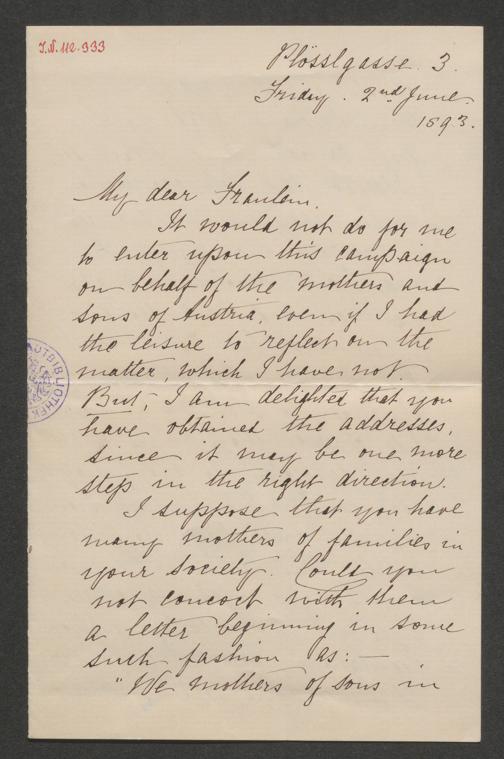 I.N. 112.333
Plösslgasse. 3.
Friday. 2nd June.
1893.
My dear Fraulein.
It would not do for me
to enter upon this campaign
on behalf of the mothers and
sons of Austria, even if I had
the leisure to reflect on the
matter, which I have not.
But, I am delighted that you
have obtained the addresses,
since it may be one more
step in the right direction.
I suppose that you have
many mothers of families in
your society. Could you
not concoct with them
a letter beginning in some
such fashion as: —
"We mothers of sons in